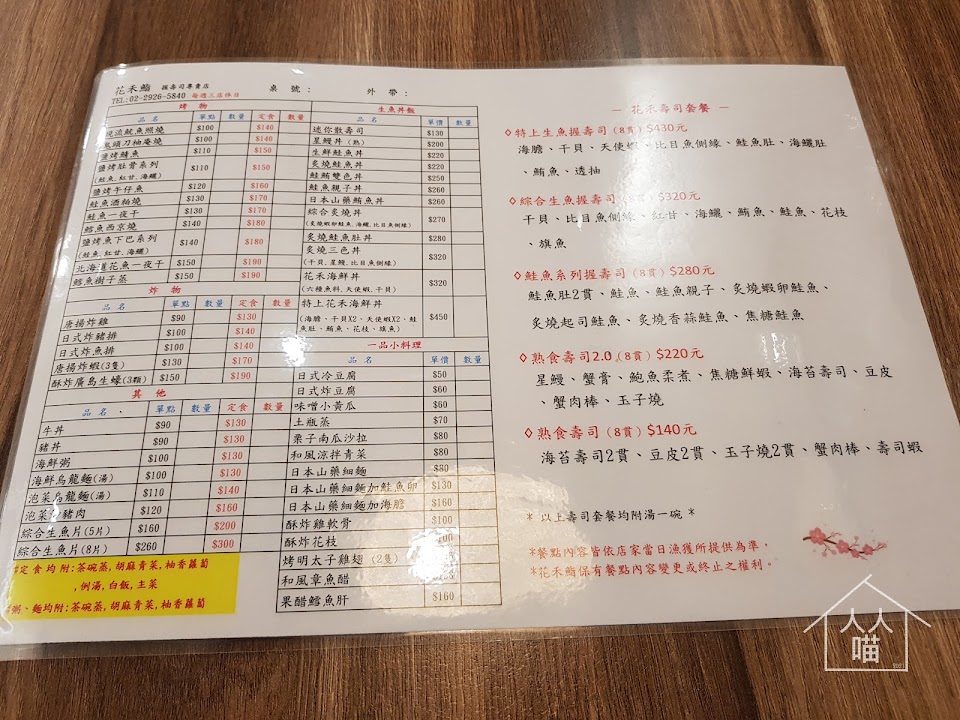 花禾鮨 握壽司專賣店 桌號： 外帶：
TEL:02-2926-5840 每週三店休日
烤 物
品名 單點 數量 定食 數量
魷魚照燒 $100 $140
柚庵燒 $100 $140
鹽烤鯖魚 $110 $150
鹽烤肚膏系列 $110 $150
(鮭魚,紅甘,海鱺)
鹽烤午仔魚 $120 $160
鮭魚酒粕燒 $130 $170
鮭魚一夜干 $130 $170
鱈魚西京燒 $140 $180
鹽烤魚下巴系列 $140 $180
(鮭魚,紅甘,海鱺)
北海道花魚一夜干 $150 $190
鱈魚樹子蒸 $150 $190
炸 物
品名 單點 數量 定食 數量
唐揚炸雞 $90 $130
日式炸豬排 $100 $140
日式炸魚排 $100 $140
唐揚炸蝦(3隻) $130 $170
酥炸廣島生蠔(3顆) $150 $190
其 他
品名 單點 數量 定食 數量
牛丼 $90 $130
豬丼 $90 $130
海鮮粥 $100 $130
海鮮烏龍麵(湯) $100 $130
泡菜烏龍麵(湯) $110 $140
泡菜豬肉 $120 $160
綜合生魚片(5片) $160 $200
綜合生魚片(8片) $260 $300
定食均附:茶碗蒸,胡麻青菜,柚香蘿蔔
,例湯,白飯,主菜
粥、麵均附:茶碗蒸,胡麻青菜,柚香蘿蔔
生魚丼飯
品名 單價 數量
迷你散壽司 $130
星鰻丼(熟) $200
生鮮鮭魚丼 $220
炙燒鮭魚丼 $220
鮭鮪雙色丼 $250
鮭魚親子丼 $260
日本山藥鮪魚丼 $260
綜合炙燒丼 $270
(炙燒蝦卵鮭魚,海鱺,比目魚側緣)
炙燒鮭魚肚丼 $280
炙燒三色丼 $320
(干貝,星鰻,比目魚側緣)
花禾海鮮丼 $320
(六種魚料,天使蝦,干貝)
特上花禾海鮮丼 $450
(海膽、干貝X2、天使蝦X2、鮭魚肚、鮪魚、花枝、旗魚)
一品小料理
品名 單價 數量
日式冷豆腐 $50
日式炸豆腐 $60
味噌小黃瓜 $60
土瓶蒸 $70
栗子南瓜沙拉 $80
和風涼拌青菜 $80
日本山藥細麵 $80
日本山藥細麵加鮭魚卵 $130
日本山藥細麵加海膽 $160
酥炸雞軟骨 $100
酥炸花枝
烤明太子雞翅(2隻)
和風章魚醋
果醋鱈魚肝 $160
— 花禾壽司套餐 —
◇特上生魚握壽司(8貫)$430元
海膽、干貝、天使蝦、比目魚側緣、鮭魚肚、海鱺肚
、鮪魚、透抽
◇綜合生魚握壽司(8貫)$320元
干貝、比目魚側緣、紅甘、海鱺、鮪魚、鮭魚、花枝
、旗魚
◇鮭魚系列握壽司(8貫)$280元
鮭魚肚2貫、鮭魚、鮭魚親子、炙燒蝦卵鮭魚、
炙燒起司鮭魚、炙燒香蒜鮭魚、焦糖鮭魚
◇熟食壽司2.0(8貫)$220元
星鰻、蟹膏、鮑魚柔煮、焦糖鮮蝦、海苔壽司、豆皮
、蟹肉棒、玉子燒
◇熟食壽司(8貫)$140元
海苔壽司2貫、豆皮2貫、玉子燒2貫、蟹肉棒、壽司蝦
*以上壽司套餐均附湯一碗*
*餐點內容皆依店家當日漁獲所提供為準,
*花禾鮨保有餐點內容變更或終止之權利。
人人
喵